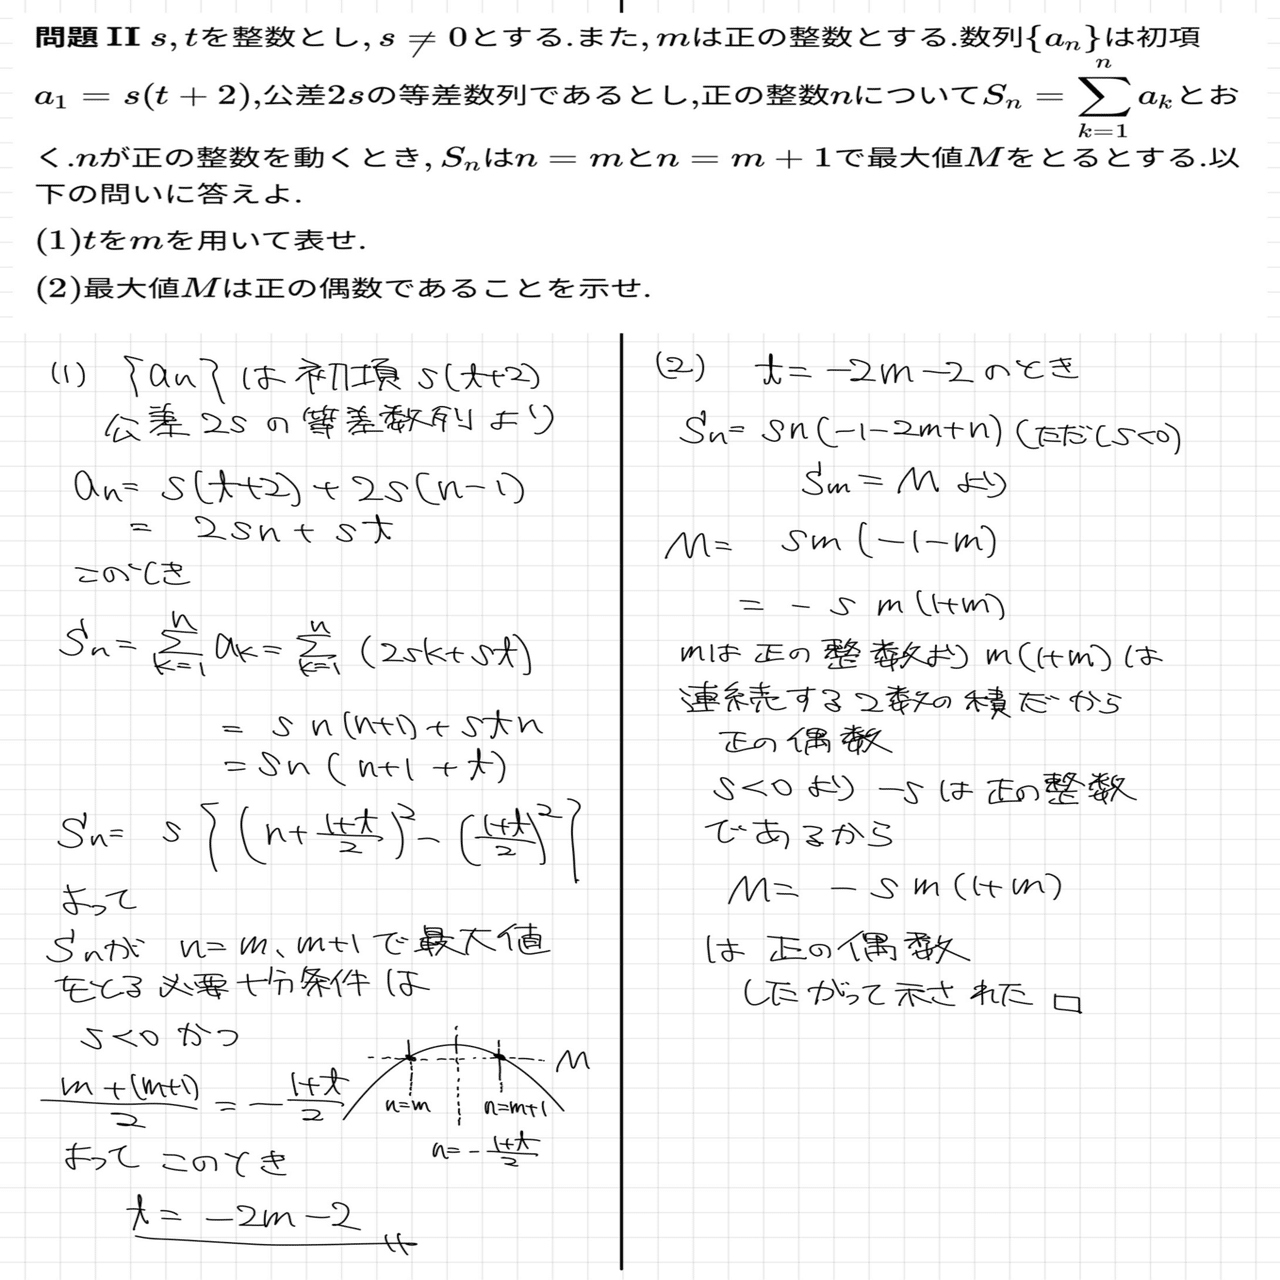 問題 II s, tを整数とし, s ≠ 0とする.また, mは正の整数とする.数列{aₙ}は初項
a₁ = s(t + 2),公差2sの等差数列であるとし,正の整数nについてSₙ = ∑_{k=1}^{n} aₖとお
く.nが正の整数を動くとき, Sₙはn = mとn = m + 1で最大値Mをとるとする.以
下の問いに答えよ.
(1)tをmを用いて表せ.
(2)最大値Mは正の偶数であることを示せ.
(1) {aₙ}は初項 s(t+2)
公差 2s の等差数列より
aₙ= s(t+2)+2s(n-1)
= 2sn+st
このとき
Sₙ= ∑_{k=1}^{n} aₖ= ∑_{k=1}^{n} (2sk+st)
= sn(n+1)+stn
=sn(n+1+t)
Sₙ= s{(n+(1+t)/2)²-((1+t)/2)²}
よって
Sₙが n=m、m+1で最大値
をとる必要十分条件は
s<0 かつ
(m+(m+1))/2 = -(1+t)/2
M
n=m n=m+1
n=-(1+t)/2
よって このとき
t= -2m-2
(2) t= -2m-2のとき
Sₙ= sn(-1-2m+n) (ただしs<0)
Sₘ=Mより
M= sm(-1-m)
= -s m(1+m)
mは正の整数よりm(1+m)は
連続する2数の積だから
正の偶数
s<0より -sは正の整数
であるから
M= -sm(1+m)
は正の偶数
したがって示された □